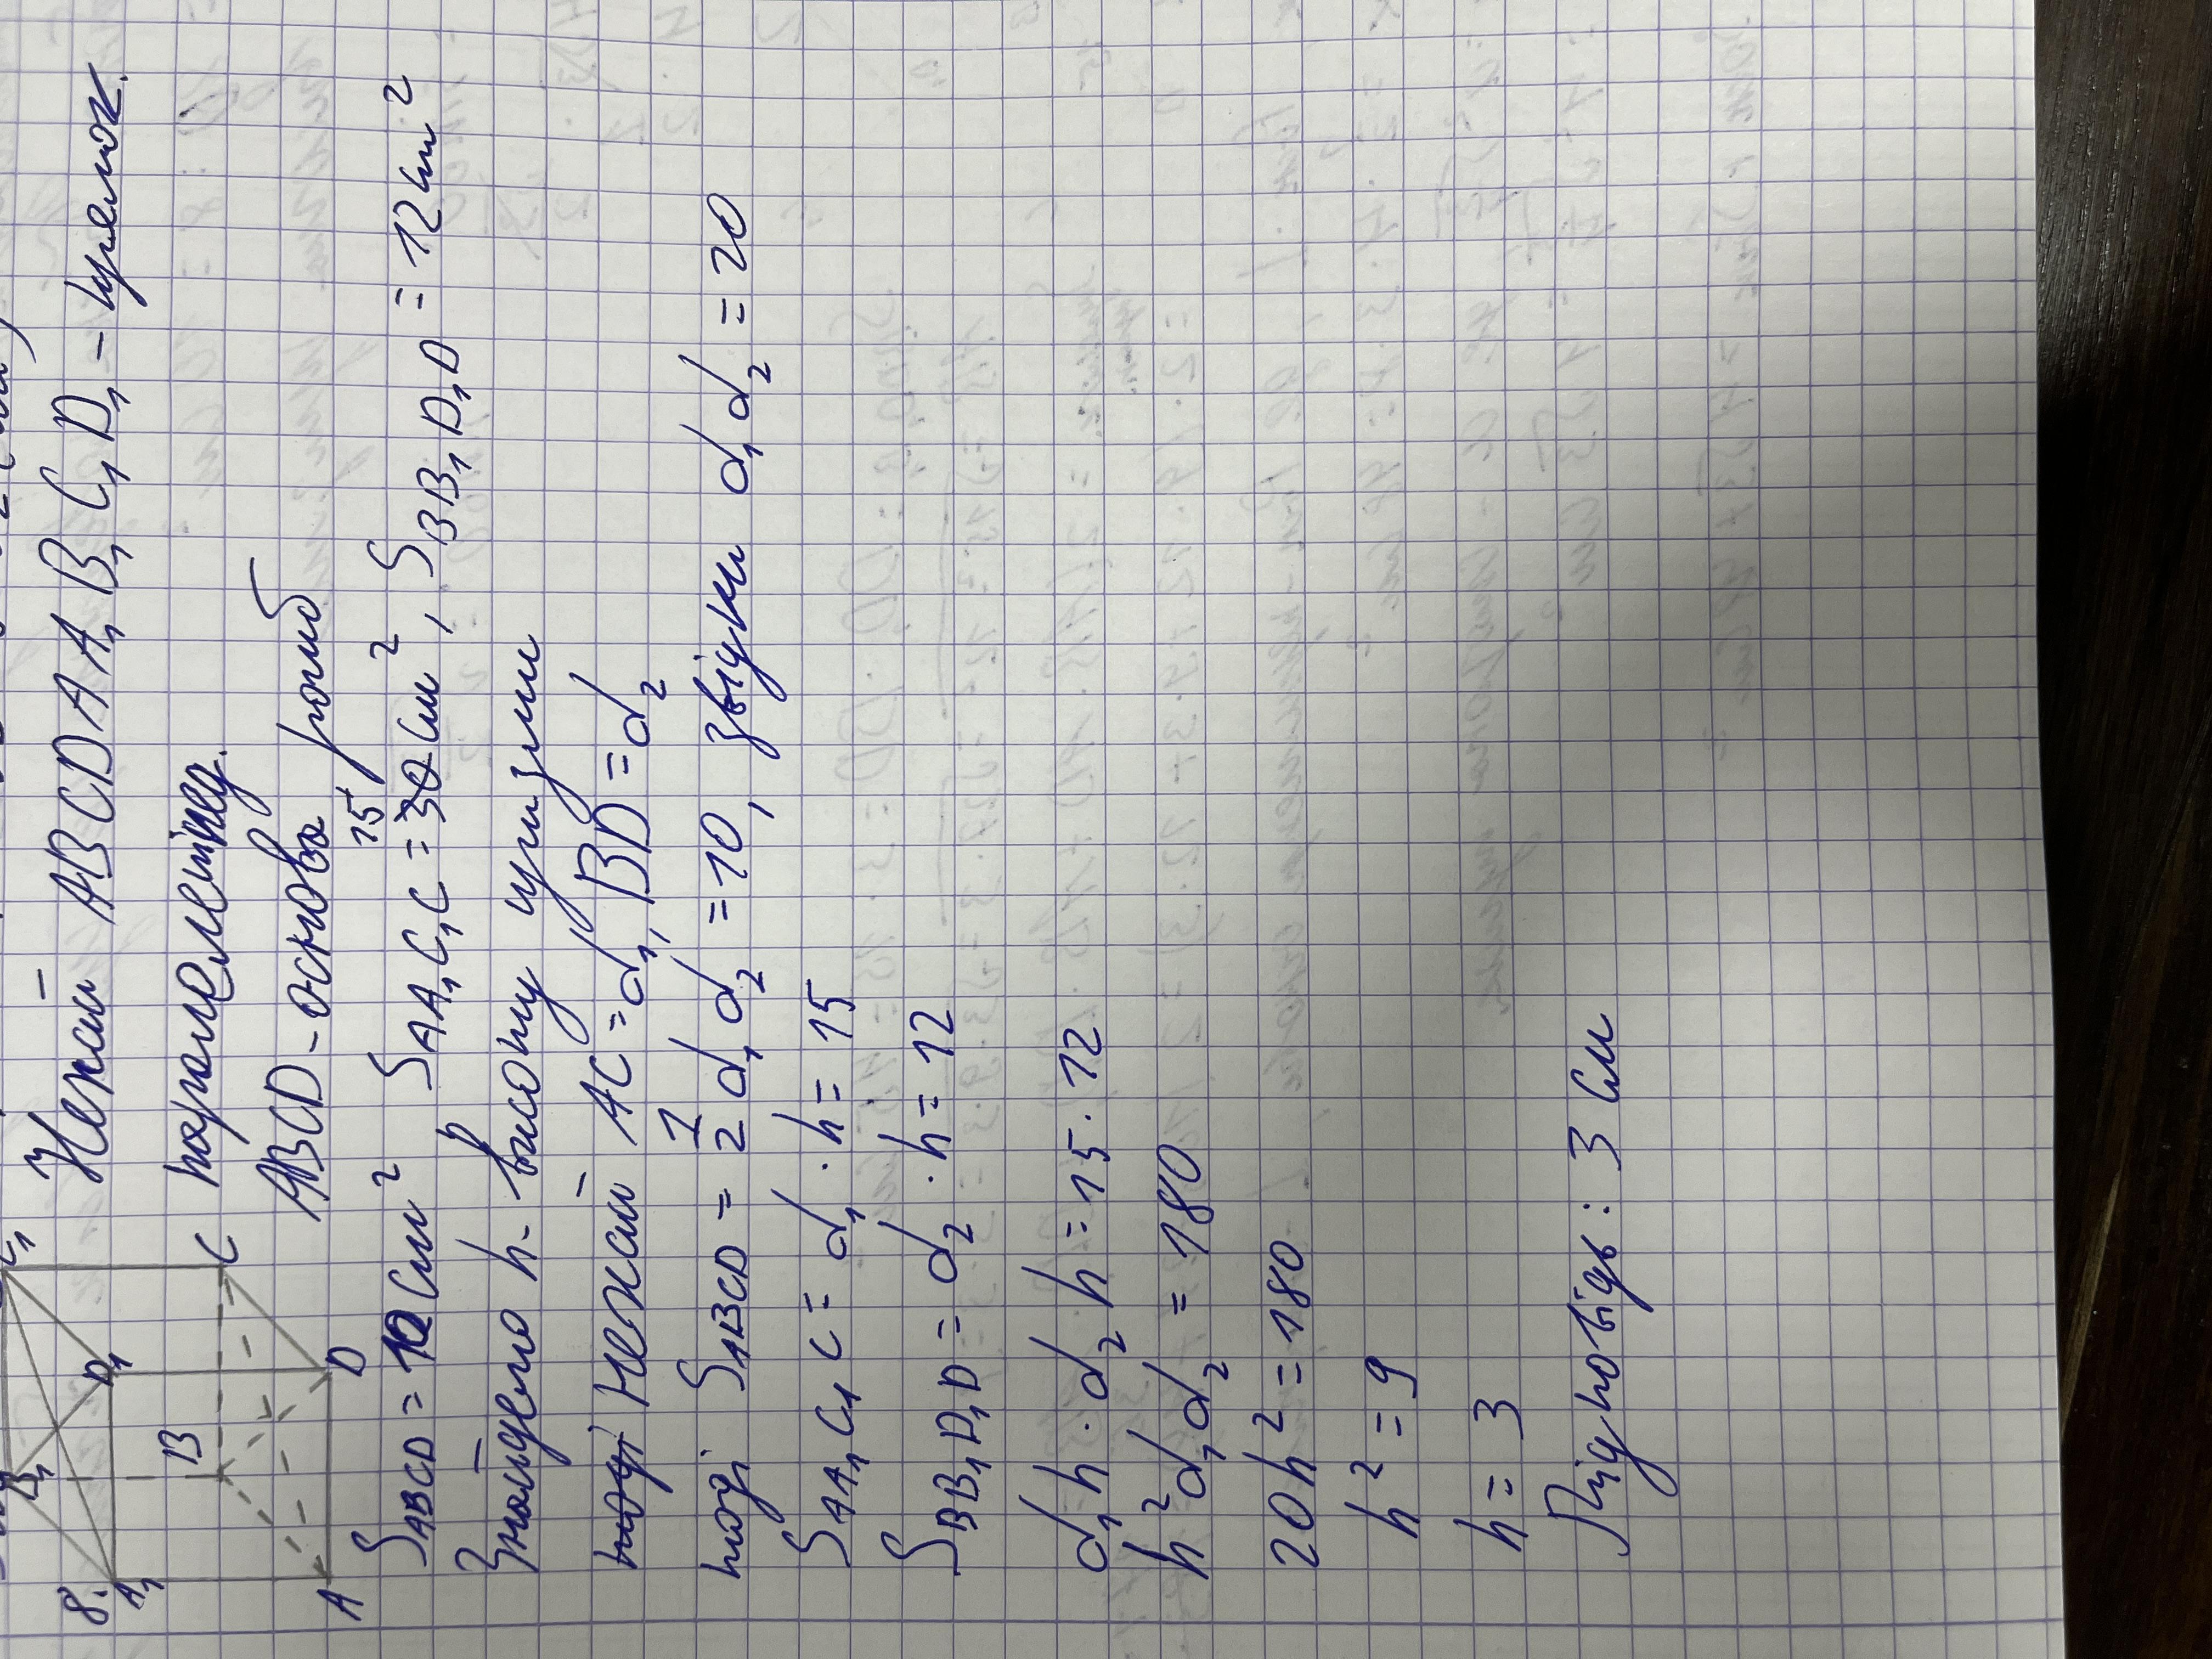 8. Нехай ABCDA₁B₁C₁D₁ – прямок.
паралелепіпед.
ABCD – основа ромб
S_ABCD = 10 см² S_AA₁C₁C = 15 см², S_BB₁D₁D = 12 см²
Знайдемо h - висоту призми
Нехай AC = d₁, BD = d₂
тоді S_ABCD = 1/2 d₁d₂ = 10, звідки d₁d₂ = 20
S_AA₁C₁C = d₁ · h = 15
S_BB₁D₁D = d₂ · h = 12
d₁h · d₂h = 15 · 12
h²d₁d₂ = 180
20h² = 180
h² = 9
h = 3
Відповідь: 3 см
B₁ C₁
A₁ D₁
B C
A D